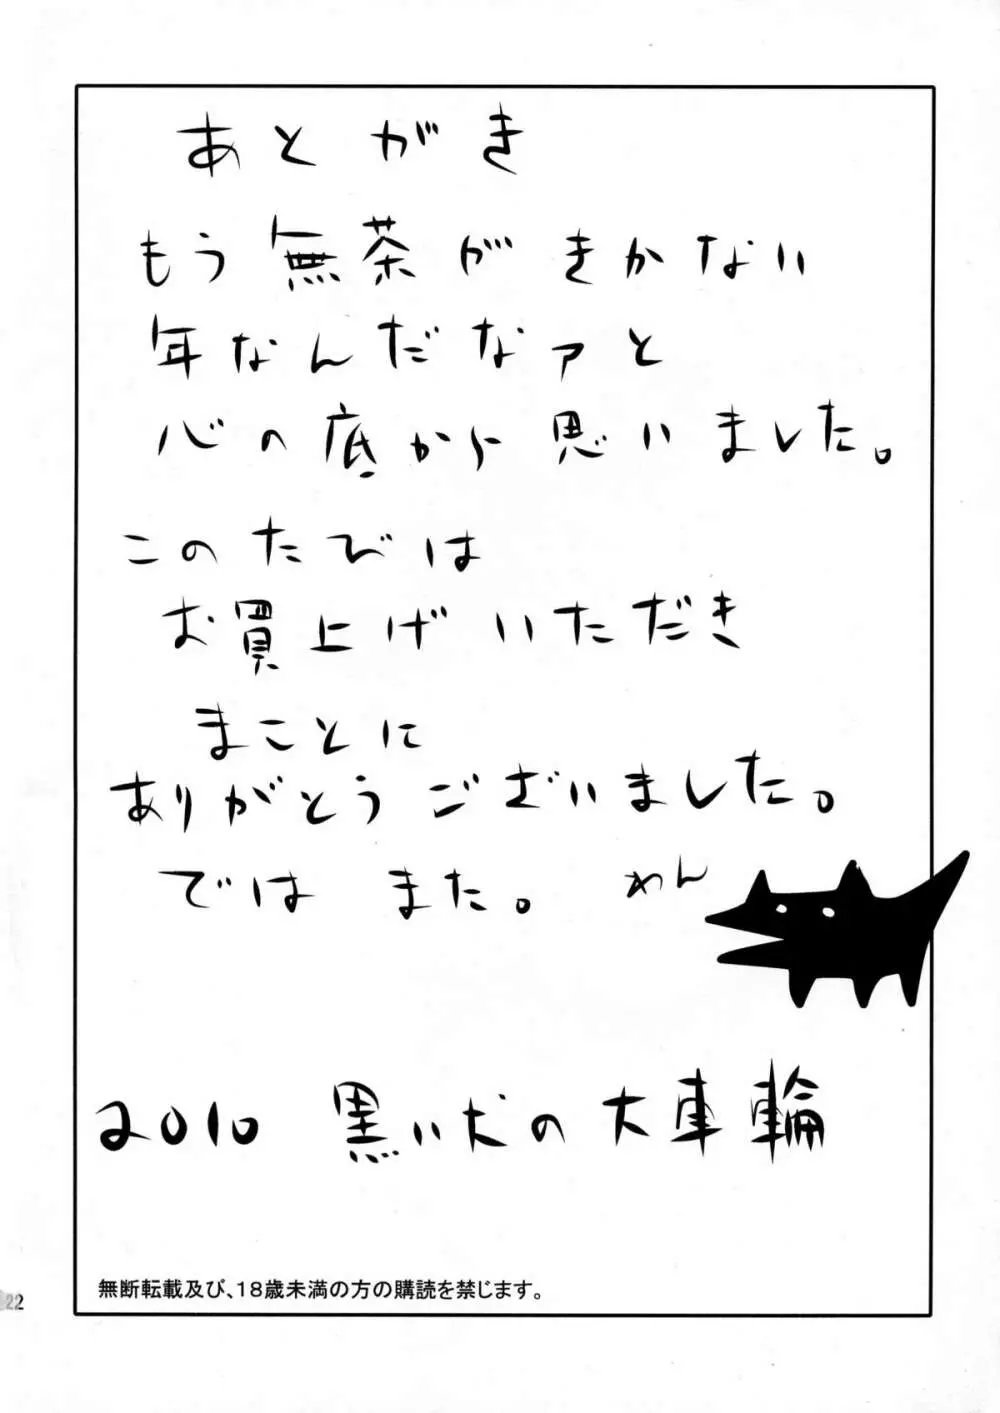 あとがき
もう無茶がきかない
年なんだなァと
心の底から思いました。
このたびは
お買上げいただき
まことに
ありがとうございました。
では また。 わん
2010 黒い犬の大車輪
無断転載及び、18歳未満の方の購読を禁じます。
22